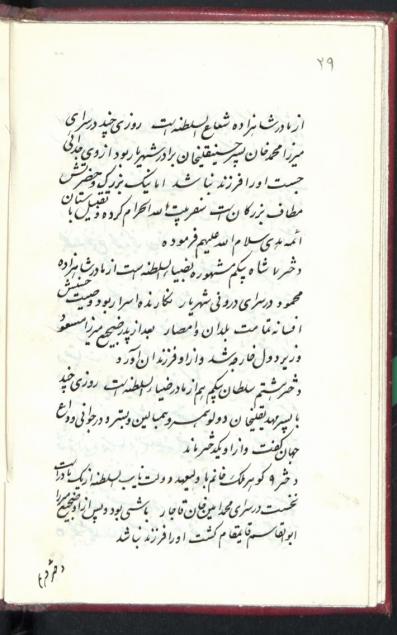 ۲۹
از مادر شاهزاده شعاع السلطنه است روزی چند در سرای
میرزا محمد خان پسر حسینقلیخان برادر شهریار بود از وی جدائی
جست او را فرزند نباشد اما نیک بزرگ و حضرتش
مطاف بزرگان است سفر بیت الله الحرام کرده و تقبیل آستان
ائمه هدی سلام الله علیهم فرموده
دختر شاه بیگم مشهوره بضیاءالسلطنه است از مادر شاهزاده
محمود در سرای درونی شهریار نگارنده اسرار بود و صیت
افسانه تمامت بلدان و امصار بعد از پدر ضجیع میرزا مسعود
وزیر دول خارجه شد و از او فرزندان آورد
دختر هشتم سلطان بیگم هم از مادر ضیاءالسلطنه است روزی چند
با پسر مهدیقلیخان دولو همسر و همبالین و بستر و در جوانی وداع
جهان گفت و از او یکدختر ماند
دختر ۹ گوهر ملک خانم با ولیعهد دولت نایب السلطنه از یک مادر است
نخست در سرای محمد امین خان قاجار باشی بود و پس از او ضجیع میرزا
ابوالقاسم قایمقام گشت او را فرزند نباشد
دختر دهم